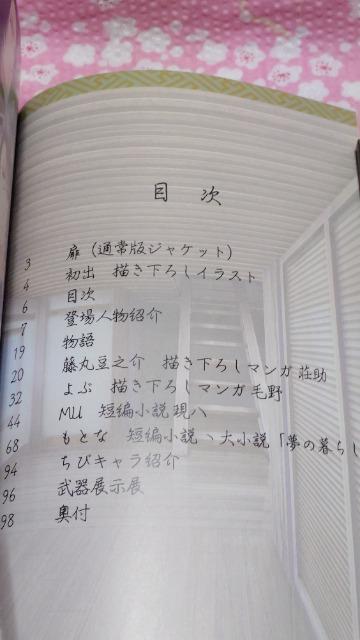 目次
3 扉（通常版ジャケット）
4 初出 描き下ろしイラスト
6 目次
7 登場人物紹介
19 物語
20 藤丸豆之介 描き下ろしマンガ 荘助
32 よぶ 描き下ろしマンガ 毛野
44 MU 短編小説 現八
68 もとな 短編小説、大小説「夢の暮らし
94 ちびキャラ紹介
96 武器展示展
98 奥付